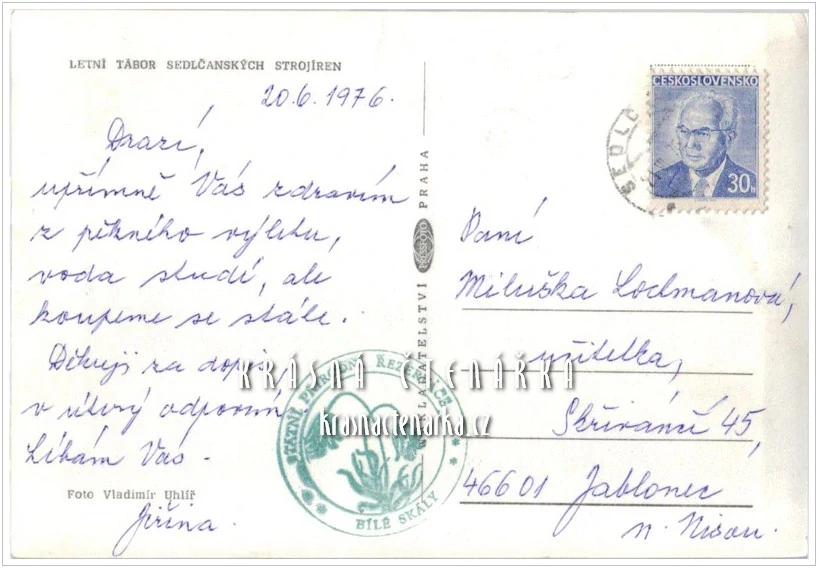 LETNÍ TÁBOR SEDLČANSKÝCH STROJÍREN
20.6.1976.
Drazí,
upřímně Vás zdravím
z pěkného výletu,
voda studí, ale
koupeme se stále.
Děkuji za dopis,
v úterý odpovím
Líbám Vás.
Foto Vladimír Uhlíř
Jiřina.
NAKLADATELSTVÍ PRESSFOTO PRAHA
STÁTNÍ PŘÍRODNÍ REZERVACE
BÍLÉ SKÁLY
KRÁSNÁ ČTENÁŘKA
krasnactenarka.cz
ČESKOSLOVENSKO
30h
SEDLČ
Paní
Miluška Lochmanová,
učitelka,
Skřivánčí 45,
46601 Jablonec
n. Nisou.